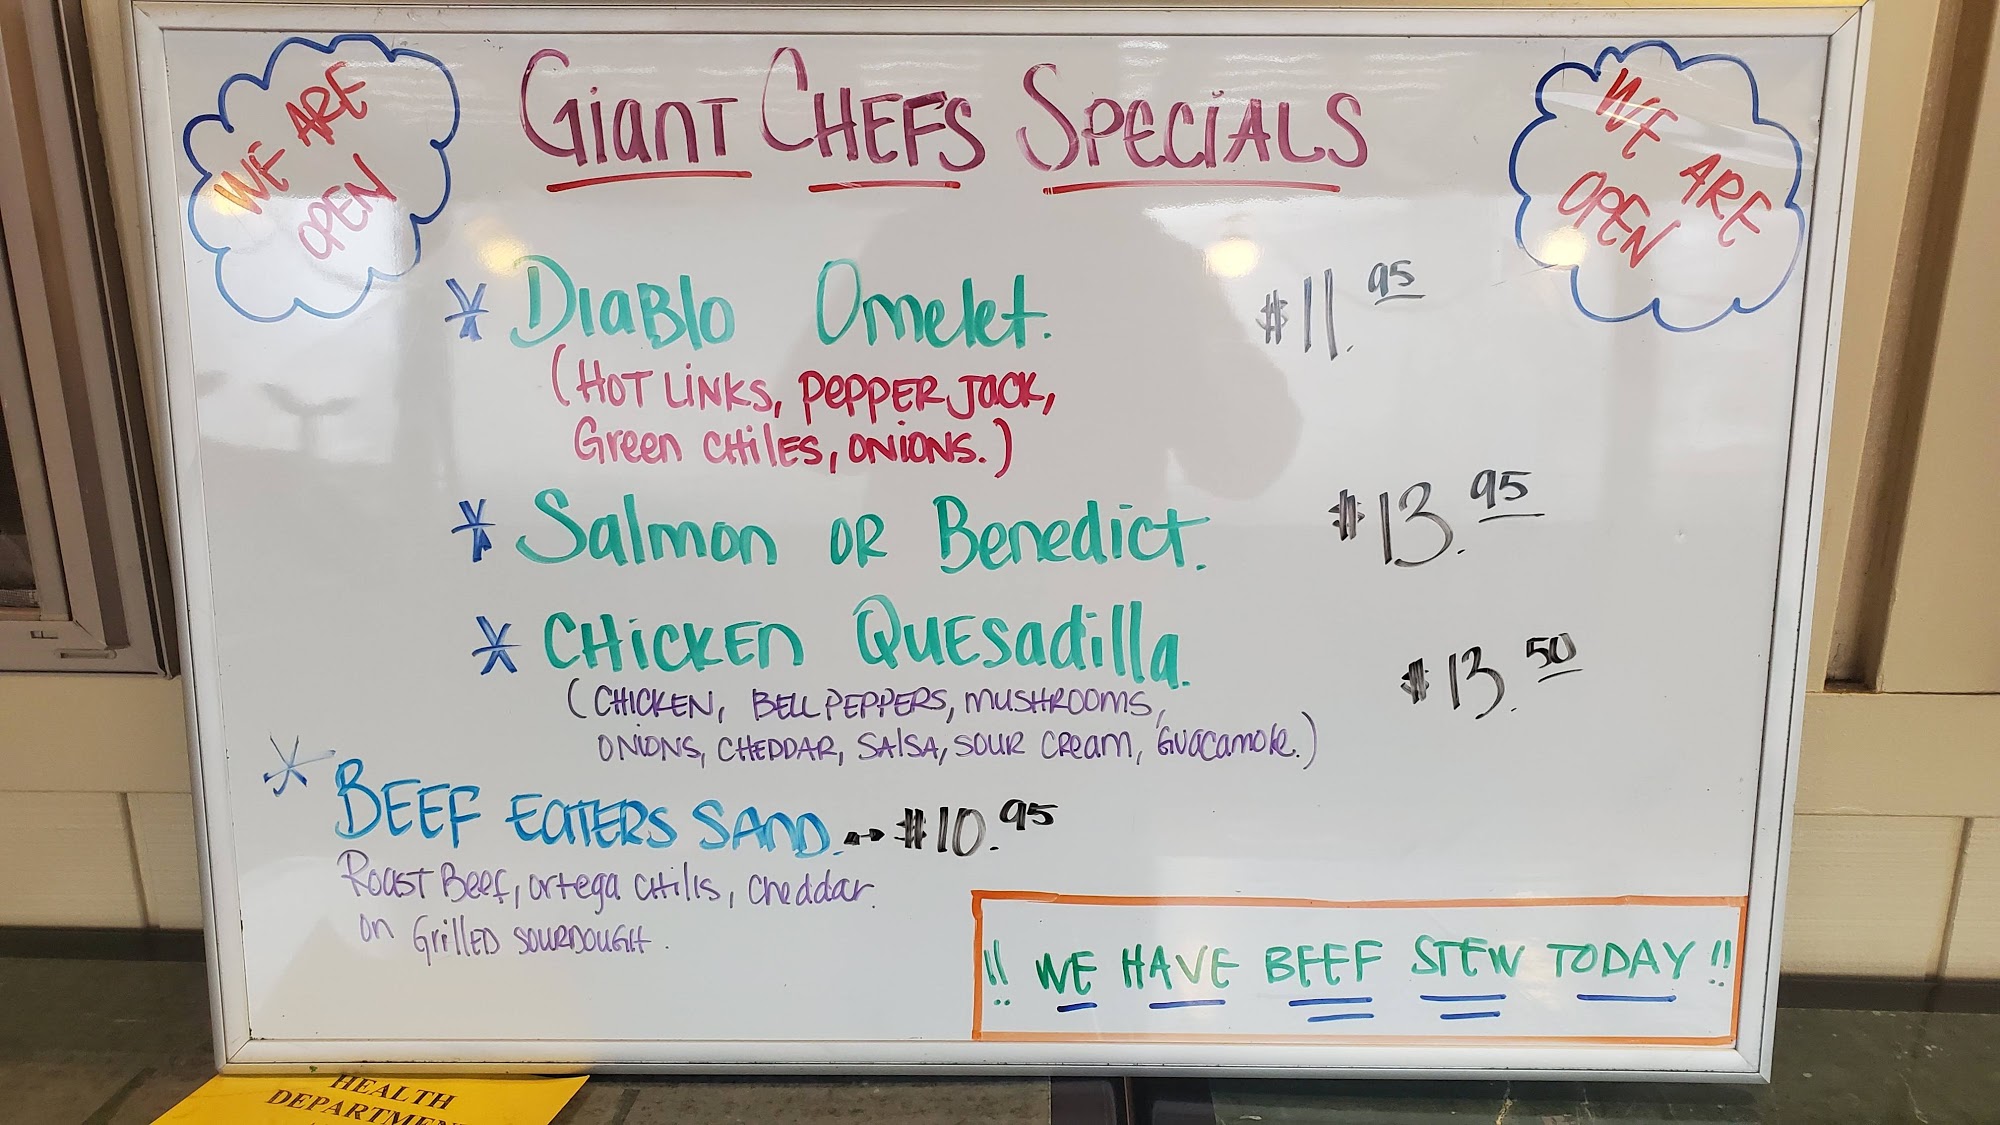 WE ARE
OPEN
GiaNT CHEF'S SPECiALS
WE ARE
OPEN
* DiaBlo Omelet. $11.95
(HOT LiNKS, PEPPER JACK,
Green CHiLES, ONiONS.)
* Salmon OR Benedict. $13.95
* CHiCKEN QUESadilla. $13.50
(CHICKEN, BELL PEPPERS, MUSHROOMS,
ONIONS, CHEDDAR, SALSA, SOUR CREAM, GUACAMOLE.)
* BEEF EATERS SAND. → $10.95
ROAST BEEF, ORTEGA CHILIS, Cheddar.
on GRILLED SOURDOUGH.
!! WE HAVE BEEF STEW TODAY !!
HEALTH